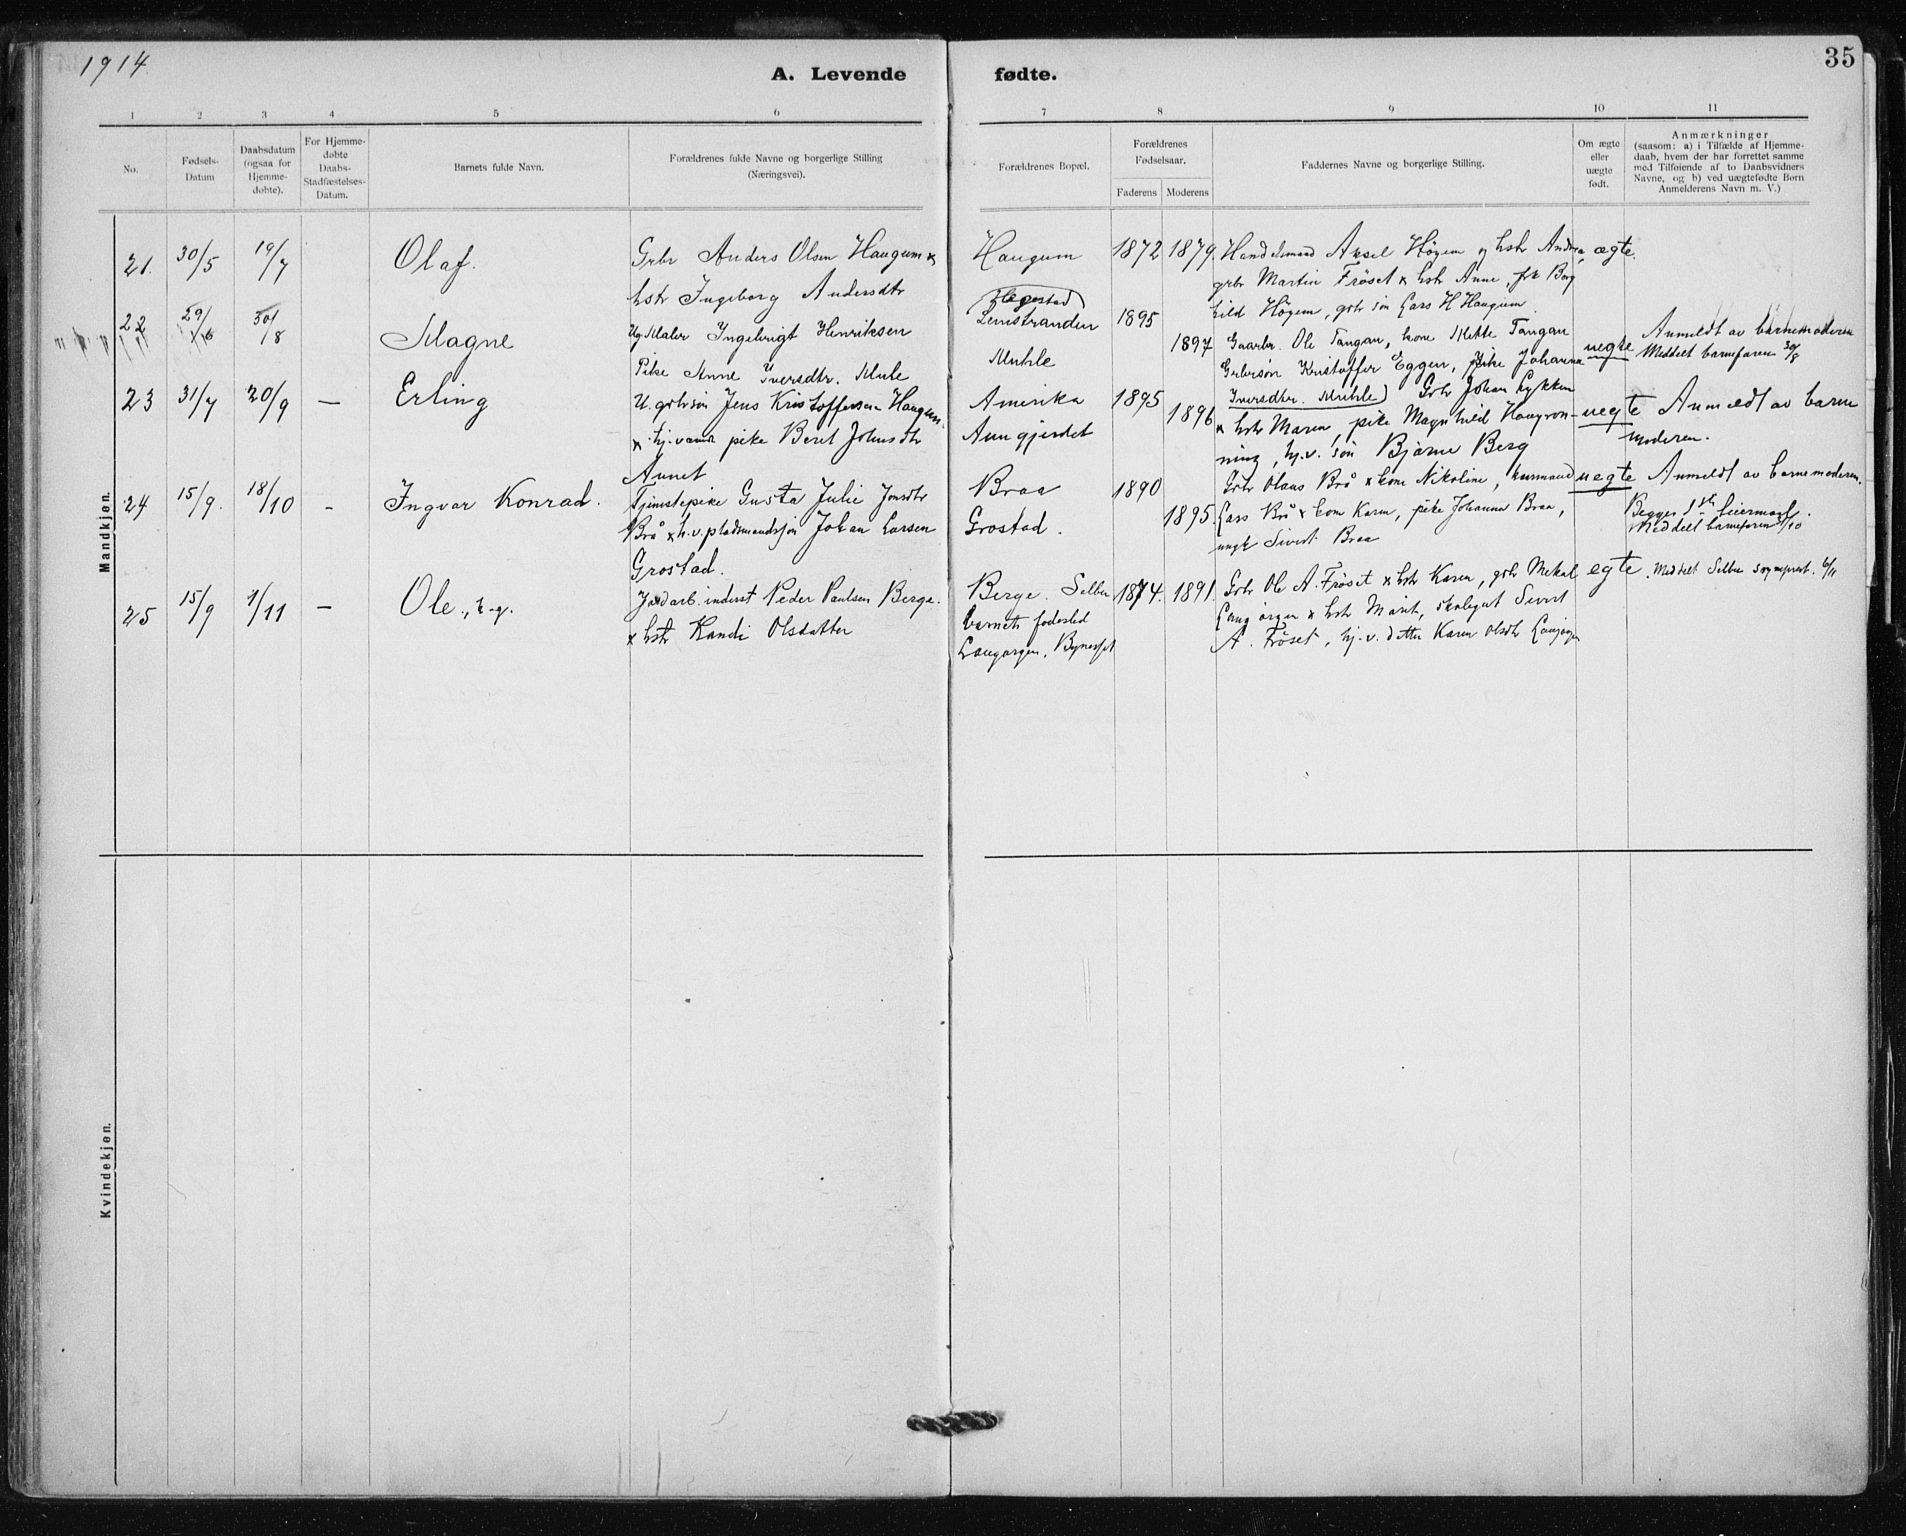 1914
A. Levende fødte.
35
1 2 3 4 5 6 7 8 9 10 11
No.
Fødsels-
Datum
Daabsdatum
(ogsaa for
Hjemme-
døbte).
For Hjemme-
døbte
Daabs-
Stadfæstelses-
Datum.
Barnets fulde Navn.
Forældrenes fulde Navne og borgerlige Stilling
(Næringsvei).
Forældrenes Bopæl.
Forældrenes
Fødselsaar.
Faderens Moderens
Faddernes Navne og borgerlige Stilling.
Om ægte
eller
uægte
født.
Anmærkninger
(saasom: a) i Tilfælde af Hjemme-
daab, hvem der har forrettet samme
med Tilføiende af to Daabsvidners
Navne, og b) ved uægtefødte Børn
Anmelderens Navn m. V.)
Mandkjøn.
21. 30/5 19/7 Olaf.
Grbr Anders Olsen Haugum x
hstr Ingeborg Andersdtr
Haugum
1872 1879
Handelsmand Aksel Høgem og hstr Andrea,
grbr Martin Frøset x hstr Anne, pk Borg
hild Høgem, grbr søn Lars H Haugum
ægte.
22 29/6 30/8 Magne
Ug Maler Ingebrigt Henriksen
Pike Anne Iversdtr. Mule
Leinstranden
Muhle
1895
1897
Gaarbr. Ole Tangan, kone Mette Tangan
Grbrsøn Kristoffer Eggen, pike Johanna
Iversdtr. Muhle
uegte
Anmeldt av barnemoderen
Meddelt barnefaren 30/8
23 31/7 20/9 – Erling
U. grbrsøn Jens Kristoffersen Haugum.
x hj.vamr pike Beret Johnsdtr
Aunet
Amerika
Aungjerdet
1895
1896
Grbr Johan Lykken
x hstr Maren, pike Magnhild Haugron-
ning, hj.v. søn Bjarne Berg
uegte
Anmeldt av barne
moderen.
24 15/9. 18/10 - Ingvar Konrad.
Tjenstepike Gusta Julie Jonsdtr
Brå x h.v. pladsmandssøn Johan Larsen
Grostad.
Braa
Grostad.
1890
1895.
Grbr Olaus Brå x kone Nikoline, kurmand
Lars Brå x kone Karen, pike Johanna Braa,
ungk Sivert Braa
uegte
Anmeldt av barnemoderen.
Begges 1ste leiermaal.
Meddelt barnefaren 1/10
25 15/9 1/11 – Ole, t.g.
Jordarb. inderst Peder Paulsen Berge.
x hstr Randi Olsdatter
Berge. Selbu
barnets fødested
Langørgen, Bynesset
1874. 1891.
Grbr Ole A. Frøset x hstr Karen, grbr Mekal
Langørgen x hstr Marit, skolegut Sivert
A. Frøset, hj.v. datter Karen Olsdtr Langørgen
egte.
Meddelt Selbu sogneprest. 6/11
Kvindekjøn.